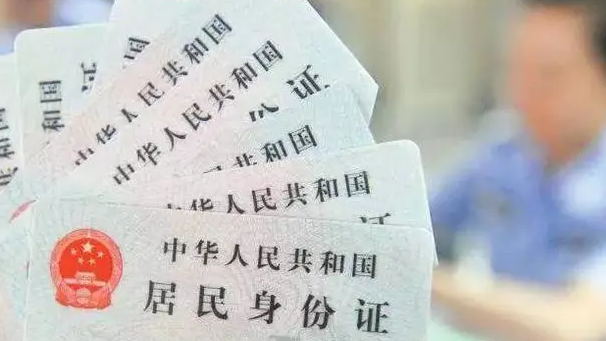 中华人民共和国
中华人民共和国
份证
共和国
华人民共和国
中华人民共和国
居民身份证